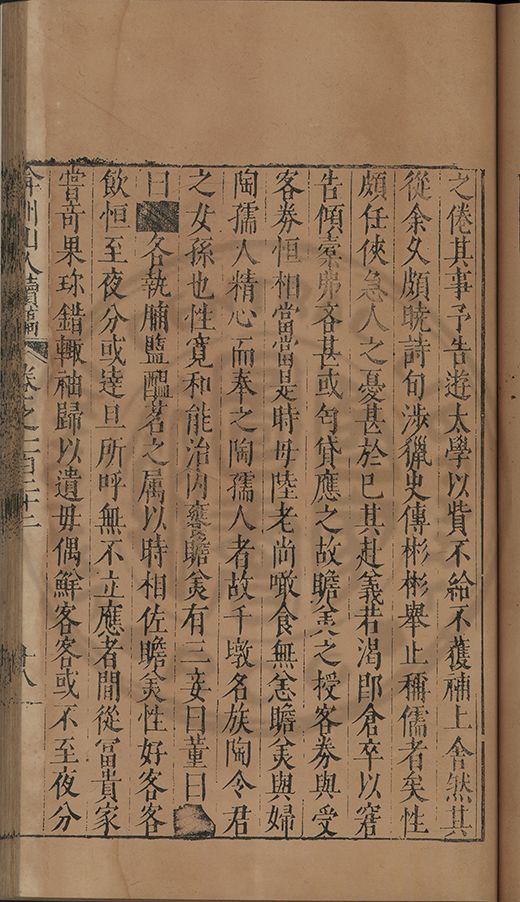 之倦其事予告遊太學以貲不給不獲補上舍然其
從余久頗曉詩句涉獵史傳彬彬舉止稱儒者矣性
頗任俠急人之憂甚於已其赴義若渴卽倉卒以窘
告傾橐畀客甚或匄貸應之故瞻美之授客券與受
客券恒相當當是時母陸老尚噉食無恙瞻美與婦
陶孺人精心而奉之陶孺人者故千墩名族陶令君
之女孫也性寬和能治內饔瞻美有三妾曰董曰
曰 各執脯盬醞茗之属以時相佐瞻美性好客客
飲恒至夜分或達旦所呼無不立應者間從富貴家
嘗奇果珎錯輙袖歸以遺母偶鮮客客或不至夜分
弇州山人續稿 卷之一百二十三 十八